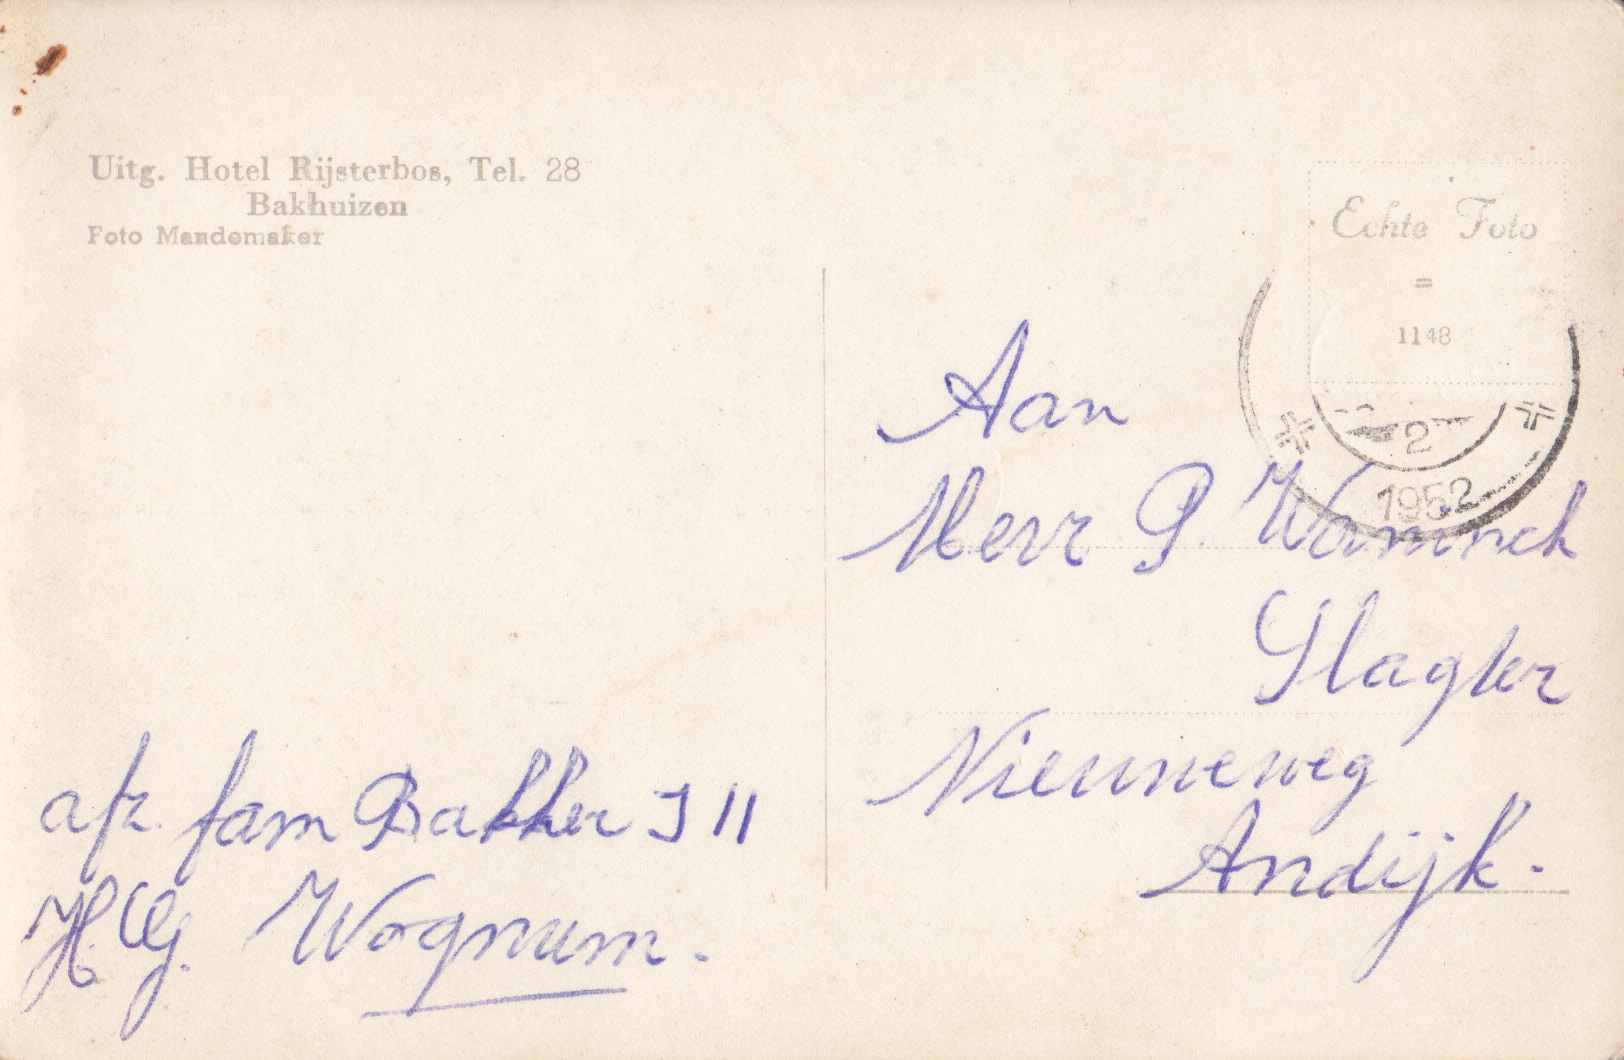 Uitg. Hotel Rijsterbos, Tel. 28
Bakhuizen
Foto Mandemaker
Echte Foto
=
1148
2
1952
Aan
Heer P.
Slager
Nieuweweg
Andijk.
afz. fam Bakker J 11
Wognum.